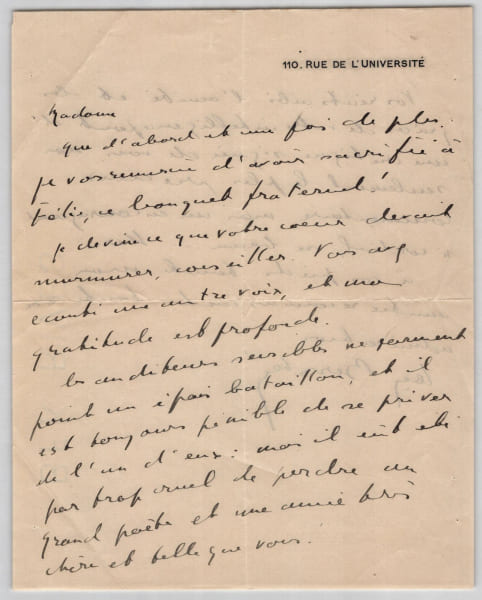 110, RUE DE L'UNIVERSITÉ
Madame
que d'abord et une fois de plus
je vous remercie d'avoir sacrifié à
ce bouquet fraternel!
je devine ce que votre coeur devait
murmurer, conseiller. Vous avez
écouté une autre voix, et ma
gratitude est profonde.
les auditeurs sensibles ne forment
point un épais bataillon, et il
est toujours pénible de se priver
de l'un d'eux: mais il eût été
par trop cruel de perdre un
grand poète et une amie très
chère et telle que vous!